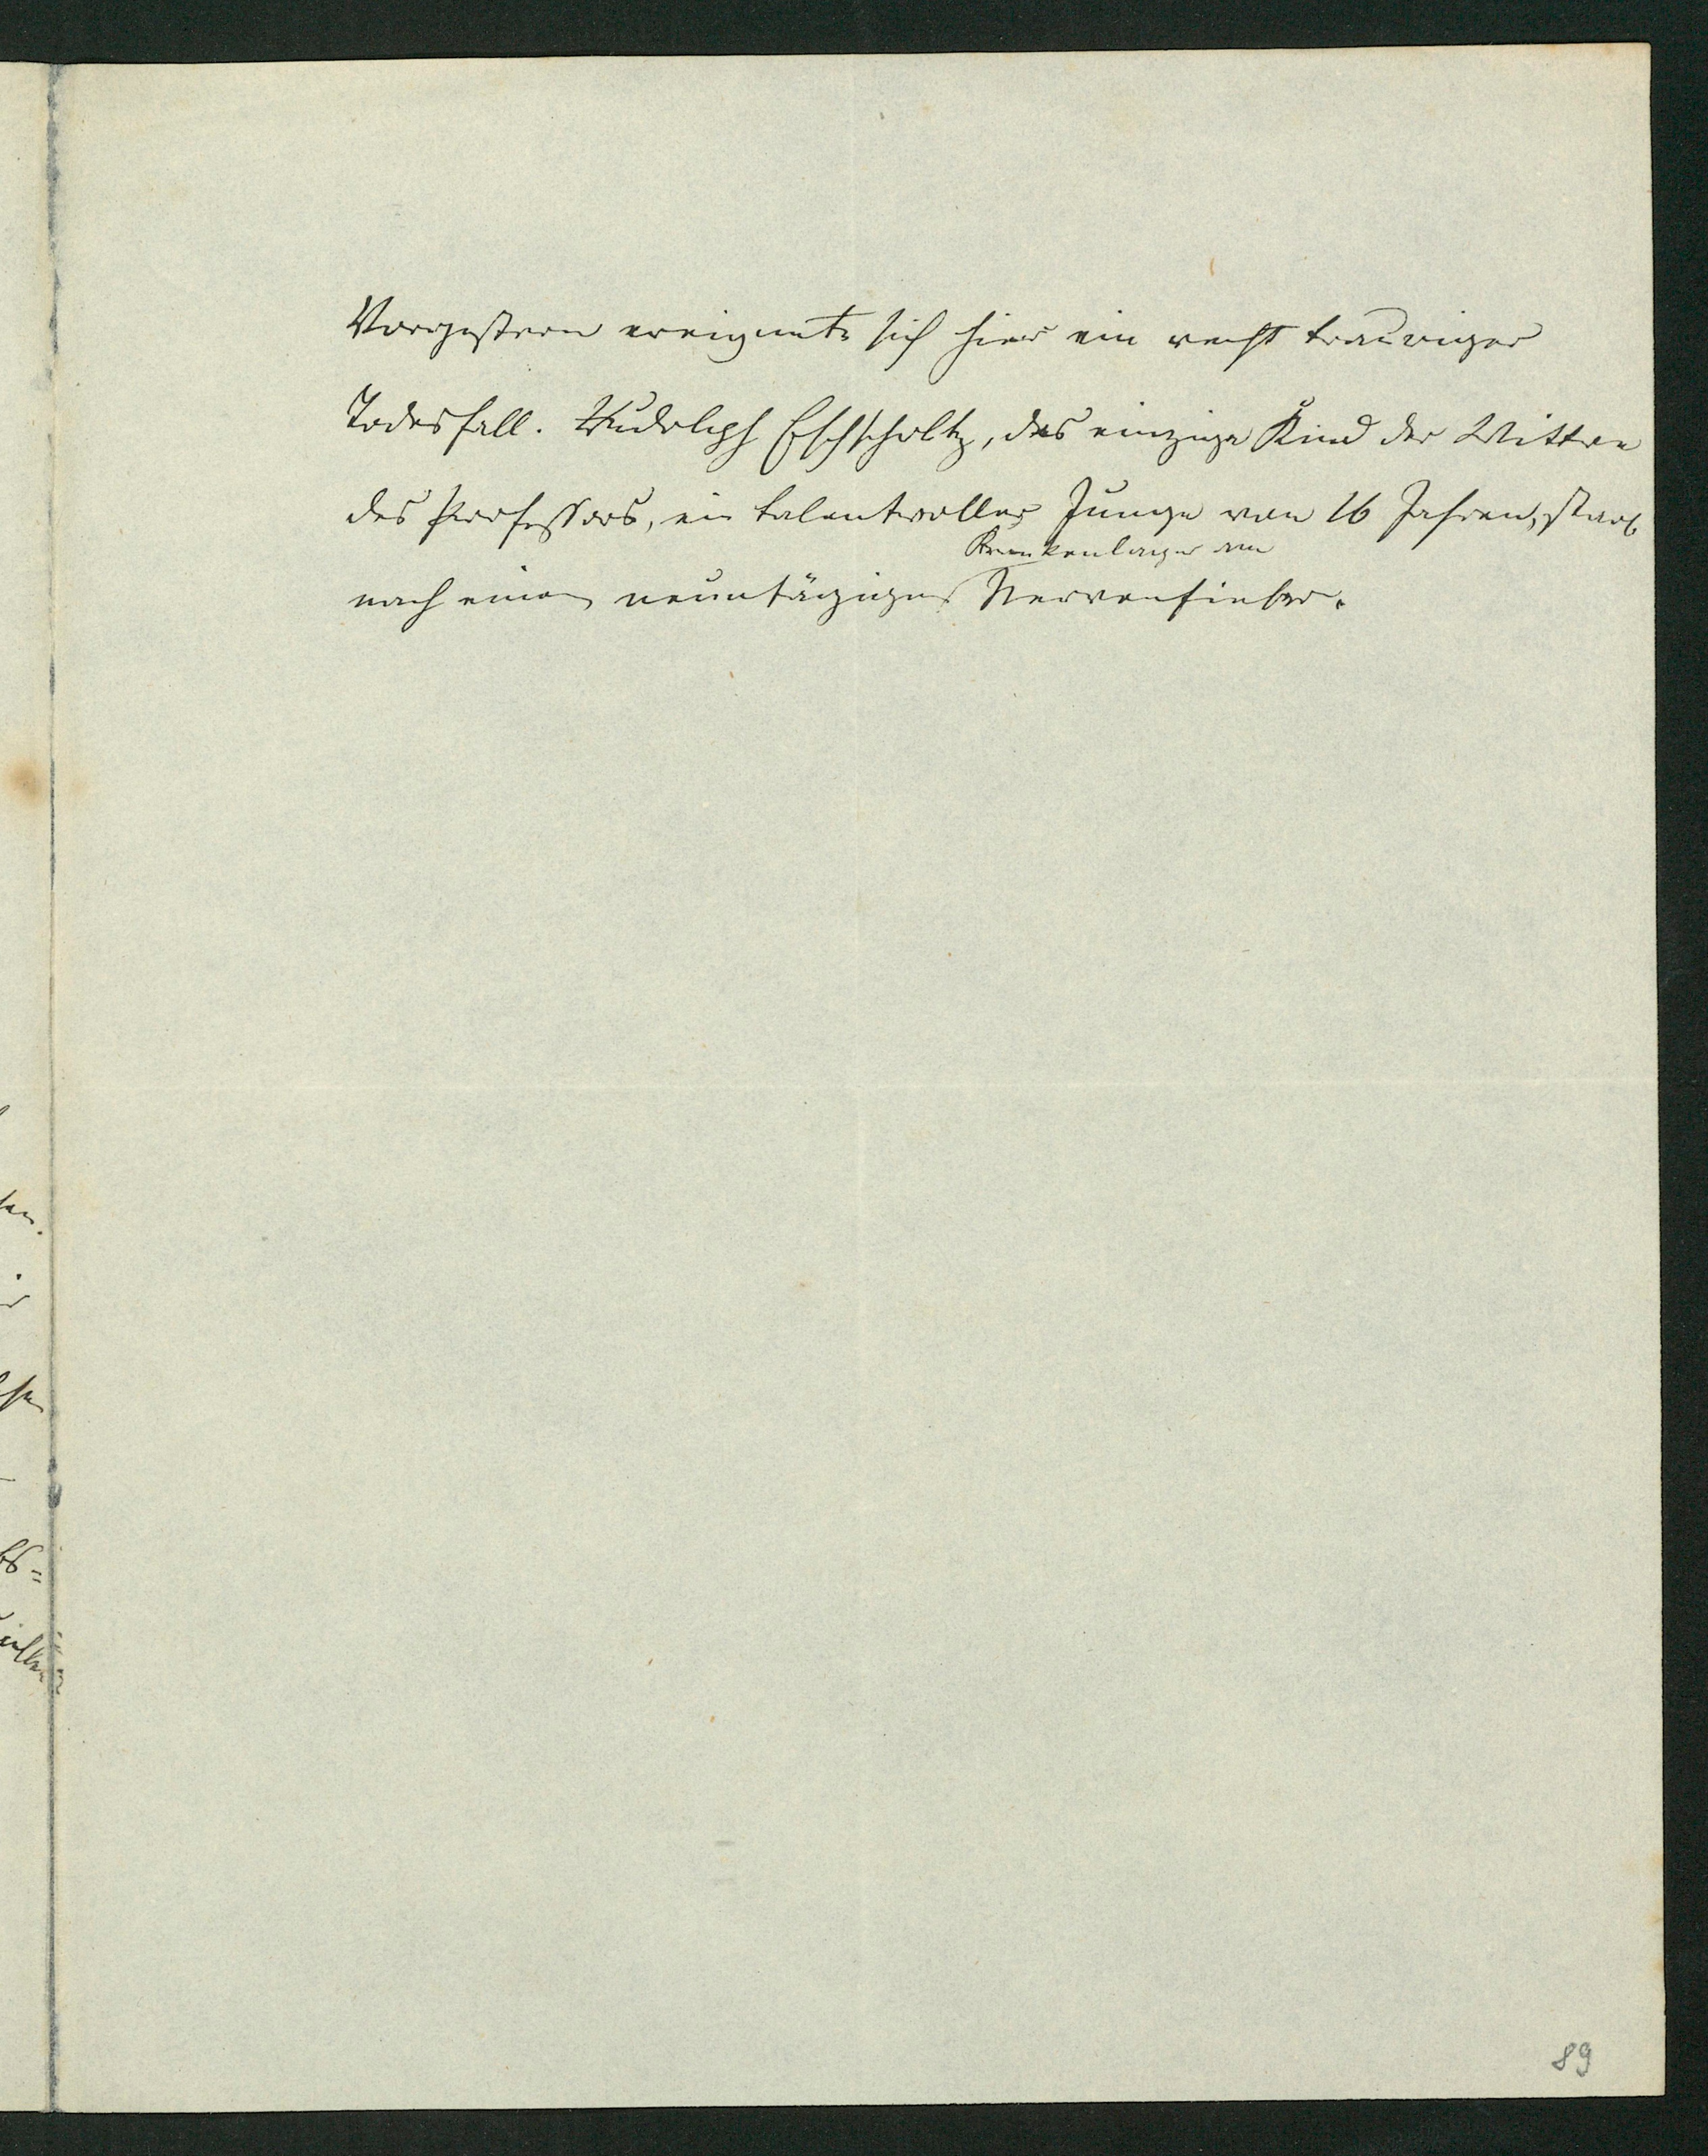 Vorgestern ereignete sich hier ein recht trauriger
Todesfall. Rudolph Eschscholtz, das einzige Kind der Wittwe
des Professors, ein talentvoller Junge von 16 Jahren, starb
Krankenlager am
nach einem neuntägigen Nervenfieber.
89